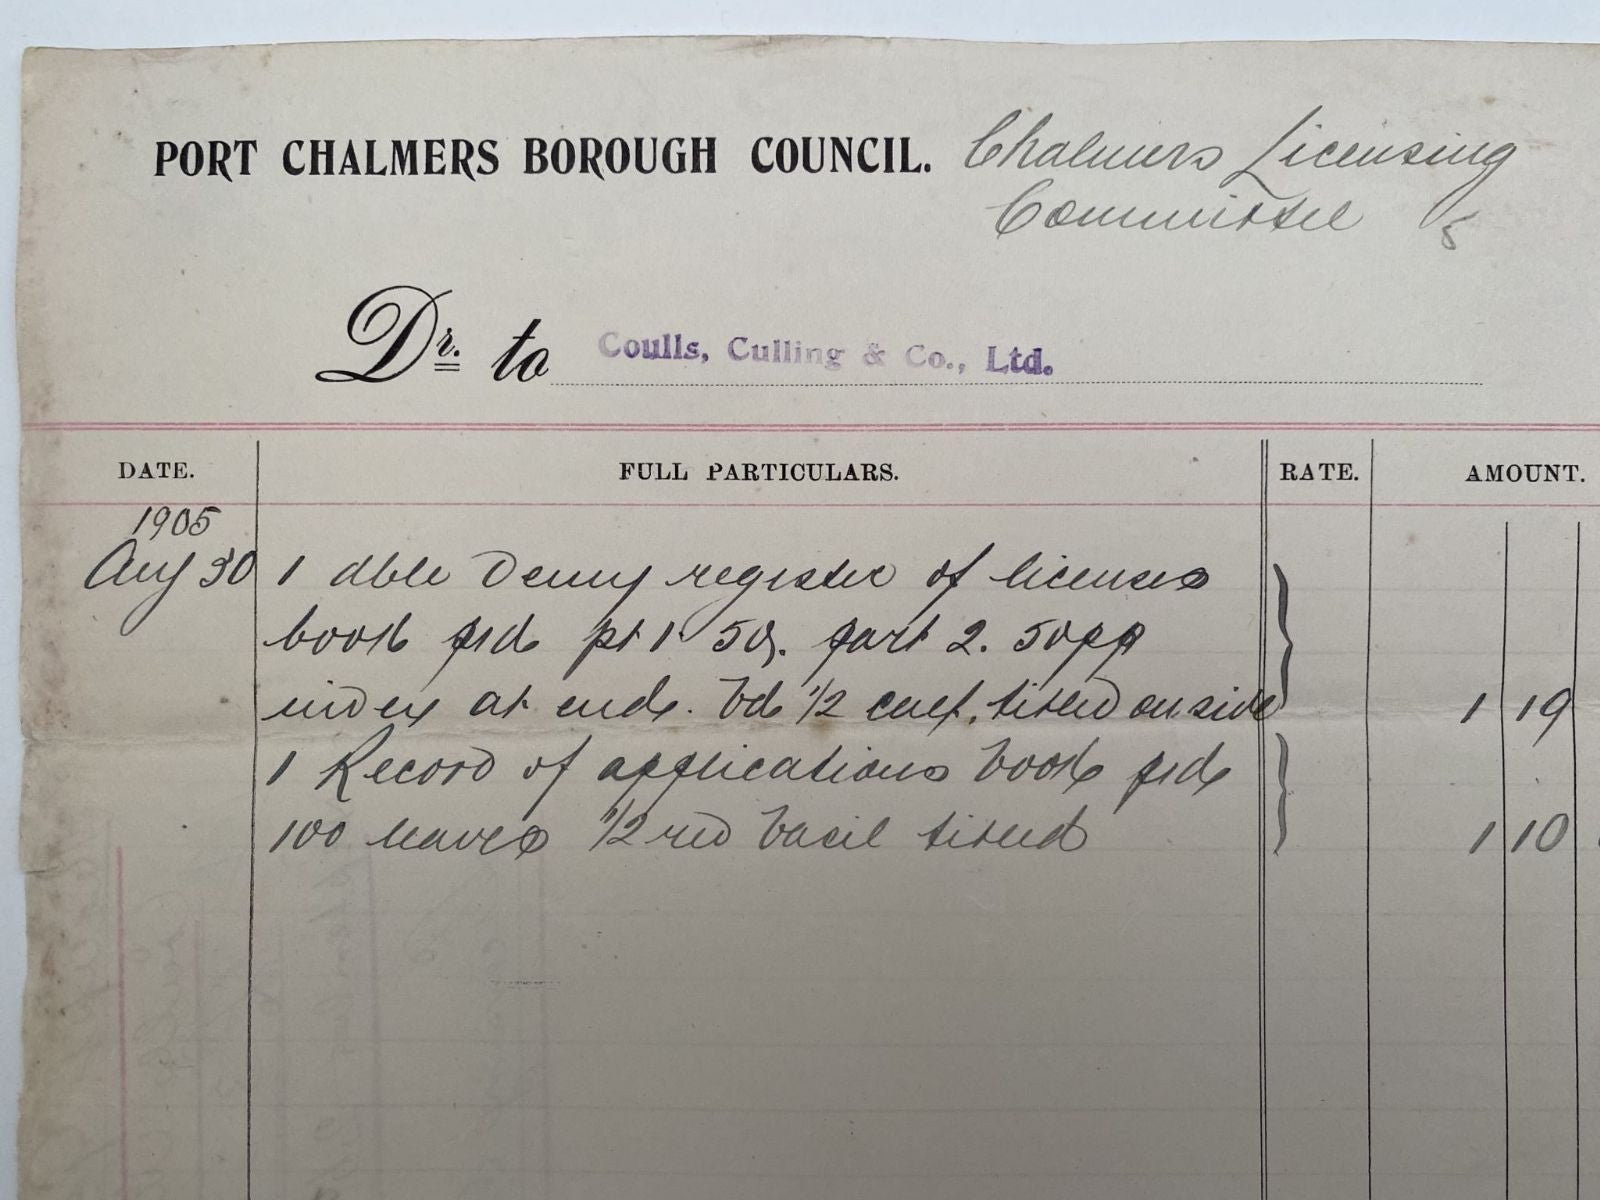 PORT CHALMERS BOROUGH COUNCIL. Chalmers Licensing
Committee
Dr. to Coulls, Culling & Co., Ltd.
DATE. FULL PARTICULARS. RATE. AMOUNT.
1905
Aug 30 1 dble Demy register of licenses
book ptd pt 1 50. part 2. 50pp
index at end. bd 1/2 calf. titled on side 1 19
1 Record of applications book ptd
100 leaves 1/2 red basil titled 1 10